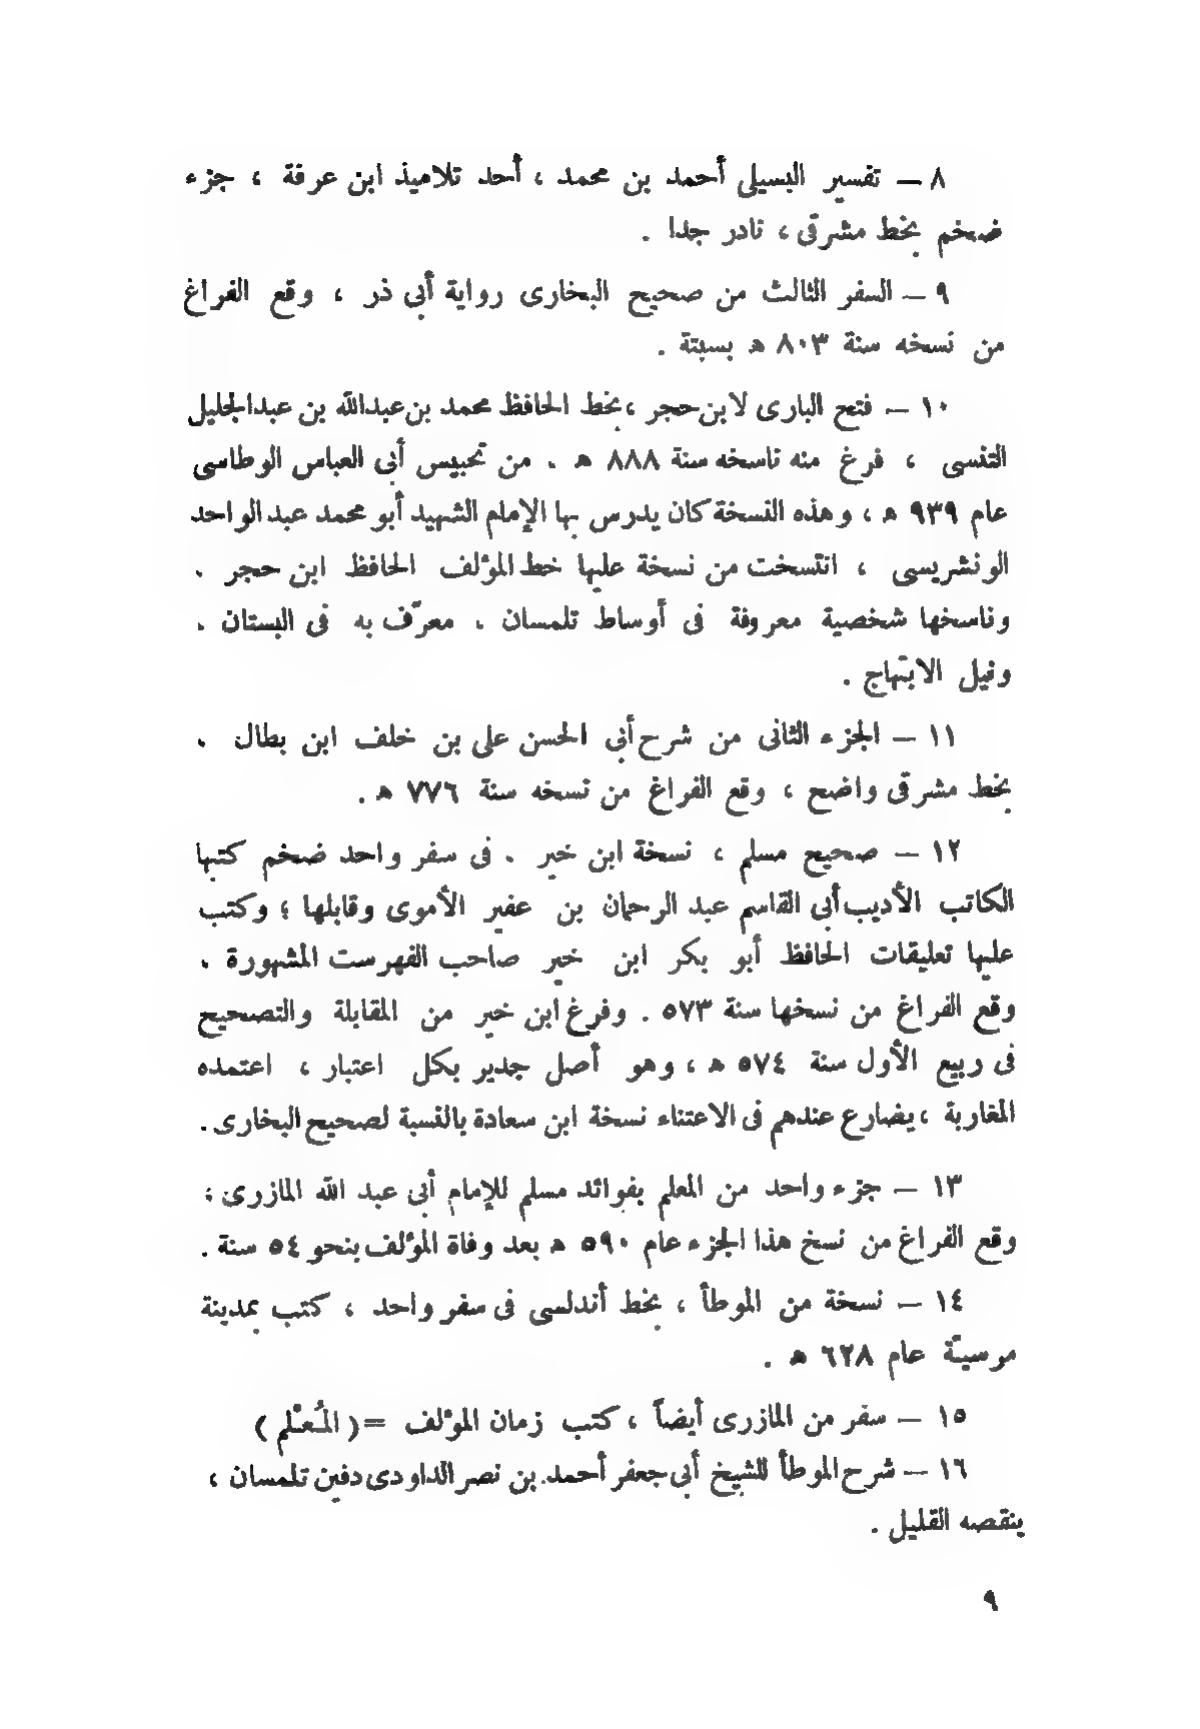 ٨ — تفسير البسيلى أحمد بن محمد ، أحد تلاميذ ابن عرفة ، جزء
ضخم بخط مشرقى ، نادر جدا .
٩ — السفر الثالث من صحيح البخارى رواية أبى ذر ، وقع الفراغ
من نسخه سنة ٨٠٣ ه بسبتة .
١٠ — فتح البارى لابن حجر ، بخط الحافظ محمد بن عبدالله بن عبدالجليل
التنسى ، فرغ منه ناسخه سنة ٨٨٨ ه . من تحبيس أبى العباس الوطاسى
عام ٩٣٩ ه ، وهذه النسخة كان يدرس بها الإمام الشهيد أبو محمد عبد الواحد
الونشريسى ، انتسخت من نسخة عليها خط المؤلف الحافظ ابن حجر .
وناسخها شخصية معروفة فى أوساط تلمسان . معرّف به فى البستان .
ونيل الابتهاج .
١١ — الجزء الثانى من شرح أبى الحسن على بن خلف ابن بطال ،
بخط مشرقى واضح ، وقع الفراغ من نسخه سنة ٧٧٦ ه .
١٢ — صحيح مسلم ، نسخة ابن خير . فى سفر واحد ضخم كتبها
الكاتب الأديب أبى القاسم عبد الرحمان بن عفير الأموى وقابلها ؛ وكتب
عليها تعليقات الحافظ أبو بكر ابن خير صاحب الفهرست المشهورة .
وقع الفراغ من نسخها سنة ٥٧٣ . وفرغ ابن خير من المقابلة والتصحيح
فى ربيع الأول سنة ٥٧٤ ه ، وهو أصل جدير بكل اعتبار ، اعتمده
المغاربة ، يضارع عندهم فى الاعتناء نسخة ابن سعادة بالنسبة لصحيح البخارى .
١٣ — جزء واحد من المعلم بفوائد مسلم للإمام أبى عبد الله المازرى ؛
وقع الفراغ من نسخ هذا الجزء عام ٥٩٠ ه بعد وفاة المؤلف بنحو ٥٤ سنة .
١٤ — نسخة من الموطأ ، بخط أندلسى فى سفر واحد ، كتب بمدينة
مرسيّة عام ٦٢٨ ه .
١٥ — سفر من المازرى أيضاً ، كتب زمان المؤلف = ( المُعلم )
١٦ — شرح الموطأ للشيخ أبى جعفر أحمد بن نصر الداودى دفين تلمسان ،
ينقصه القليل .
٩